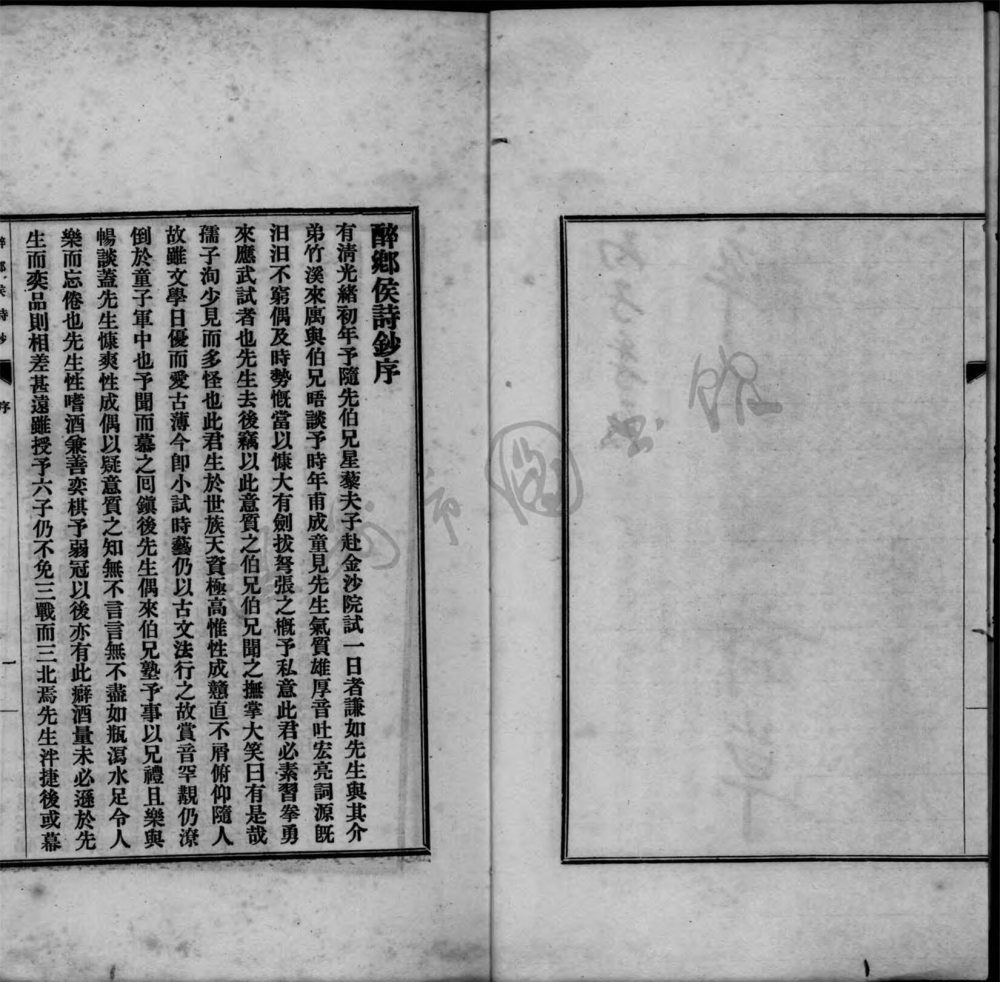 醉鄉侯詩鈔序
有清光緒初年予隨先伯兄星藜夫子赴金沙院試一日者謙如先生與其介
弟竹溪來寓與伯兄晤談予時年甫成童見先生氣質雄厚音吐宏亮詞源既
汨汨不窮偶及時勢慨當以慷大有劍拔弩張之概予私意此君必素習拳勇
來應武試者也先生去後竊以此意質之伯兄伯兄聞之撫掌大笑曰有是哉
孺子洵少見而多怪也此君生於世族天資極高惟性成戇直不屑俯仰隨人
故雖文學日優而愛古薄今卽小試時藝仍以古文法行之故賞音罕觀仍潦
倒於童子軍中也予聞而慕之回鎭後先生偶來伯兄塾予事以兄禮且樂與
暢談蓋先生慷爽性成偶以疑意質之知無不言言無不盡如瓶瀉水足令人
樂而忘倦也先生性嗜酒兼善奕棋予弱冠以後亦有此癖酒量未必遜於先
生而奕品則相差甚遠雖授予六子仍不免三戰而三北焉先生泮捷後或幕
醉鄉侯詩鈔 序 一